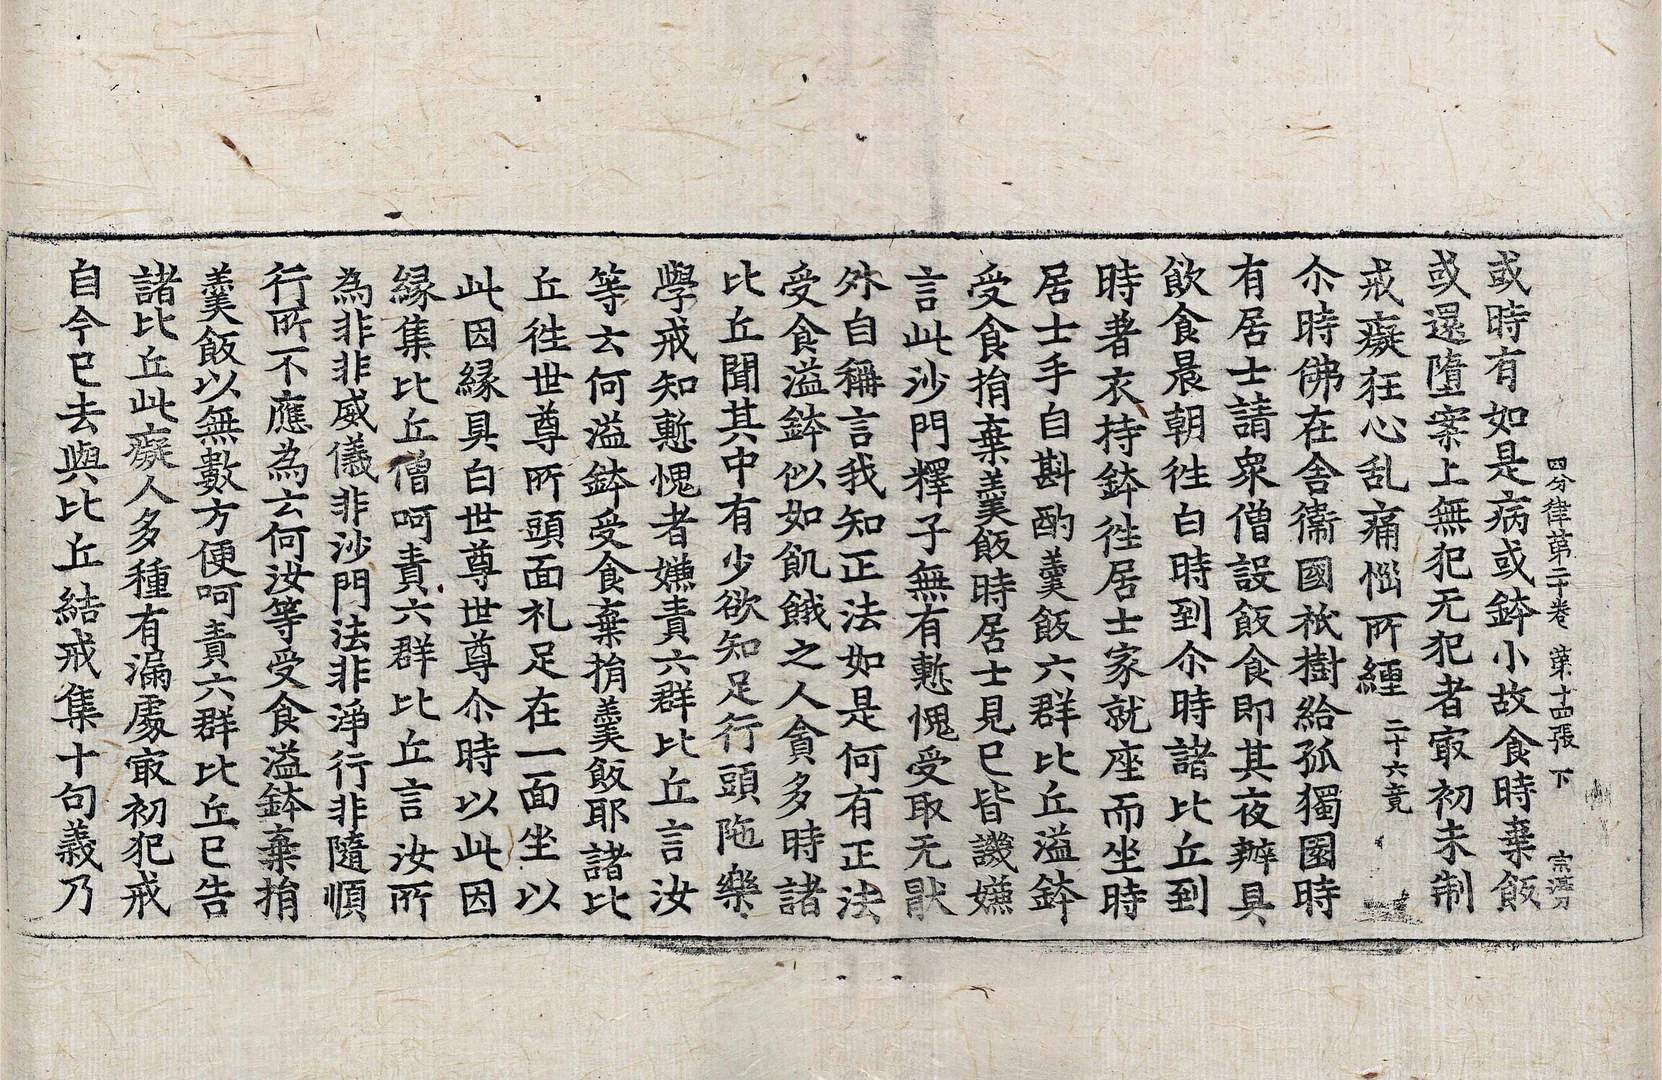 四分律第二十卷 第十四張 下 宗
或時有如是病或鉢小故食時棄飯
或還墮案上無犯无犯者㝡初未制
戒癡狂心乱痛惱所纏 二十六竟
尒時佛在舍衞國祇樹給孤獨園時
有居士請衆僧設飯食即其夜辦具
飲食晨朝徃白時到尒時諸比丘到
時著衣持鉢徃居士家就座而坐時
居士手自斟酌羹飯六群比丘溢鉢
受食捐棄羹飯時居士見已皆譏嫌
言此沙門釋子無有慙愧受取无猒
外自稱言我知正法如是何有正法
受食溢鉢似如飢餓之人貪多時諸
比丘聞其中有少欲知足行頭陁樂
學戒知慙愧者嫌責六群比丘言汝
等云何溢鉢受食棄捐羹飯耶諸比
丘徃世尊所頭面礼足在一面坐以
此因縁具白世尊世尊尒時以此因
縁集比丘僧呵責六群比丘言汝所
為非非威儀非沙門法非淨行非隨順
行所不應為云何汝等受食溢鉢棄捐
羹飯以無數方便呵責六群比丘已告
諸比丘此癡人多種有漏處㝡初犯戒
自今已去與比丘結戒集十句義乃